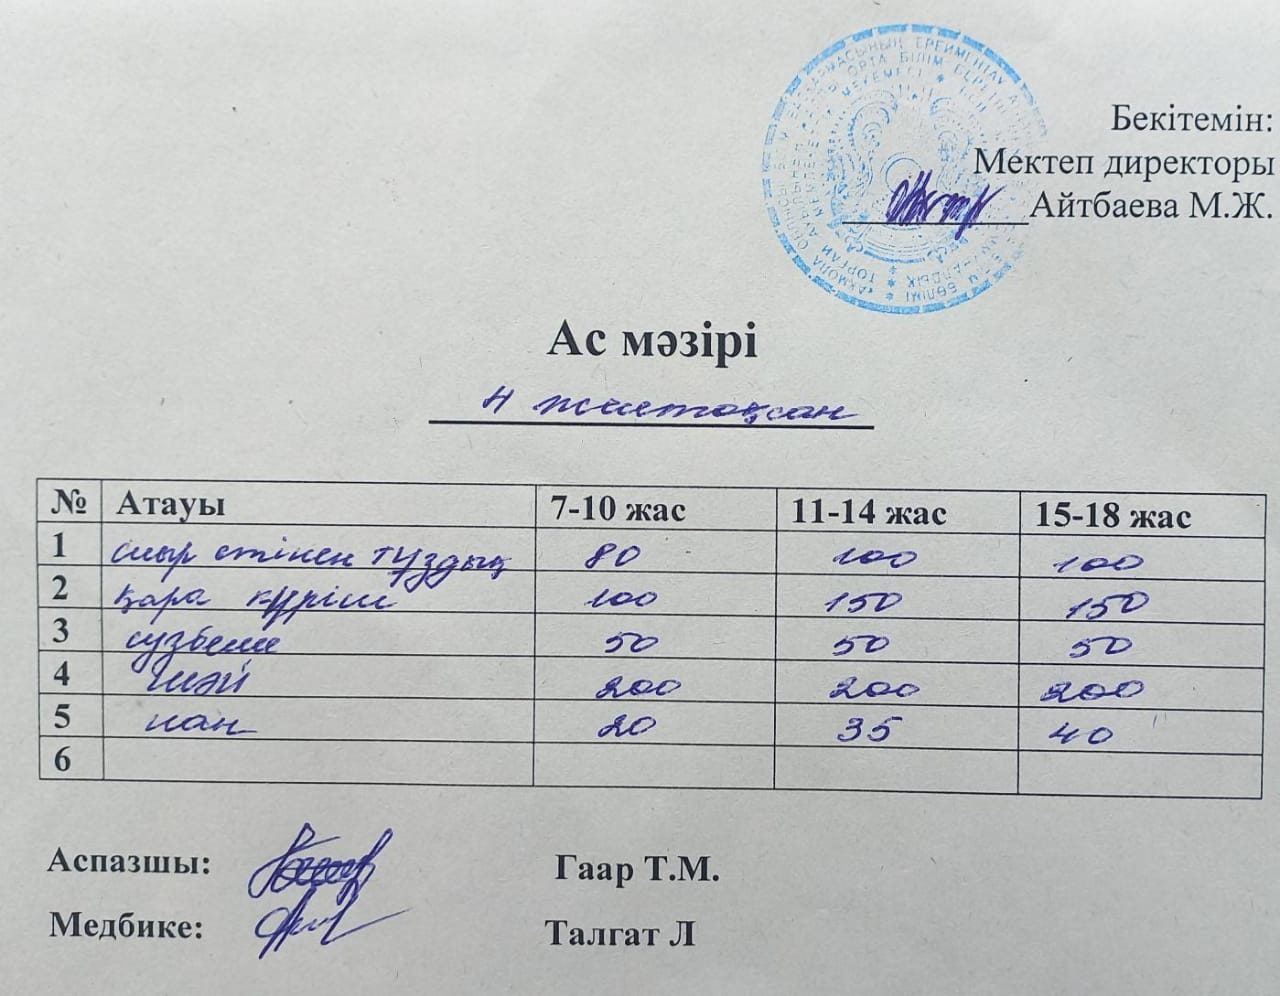 Бекітемін:
Мектеп директоры
Айтбаева М.Ж.
Ас мәзірі
4 желтоқсан
№ Атауы 7-10 жас 11-14 жас 15-18 жас
1 сиыр етінен тұздық 80 100 100
2 қара күріш 100 150 150
3 сүзбеше 50 50 50
4 шәй 200 200 200
5 нан 20 35 40
6
Аспазшы: Гаар Т.М.
Медбике: Талгат Л